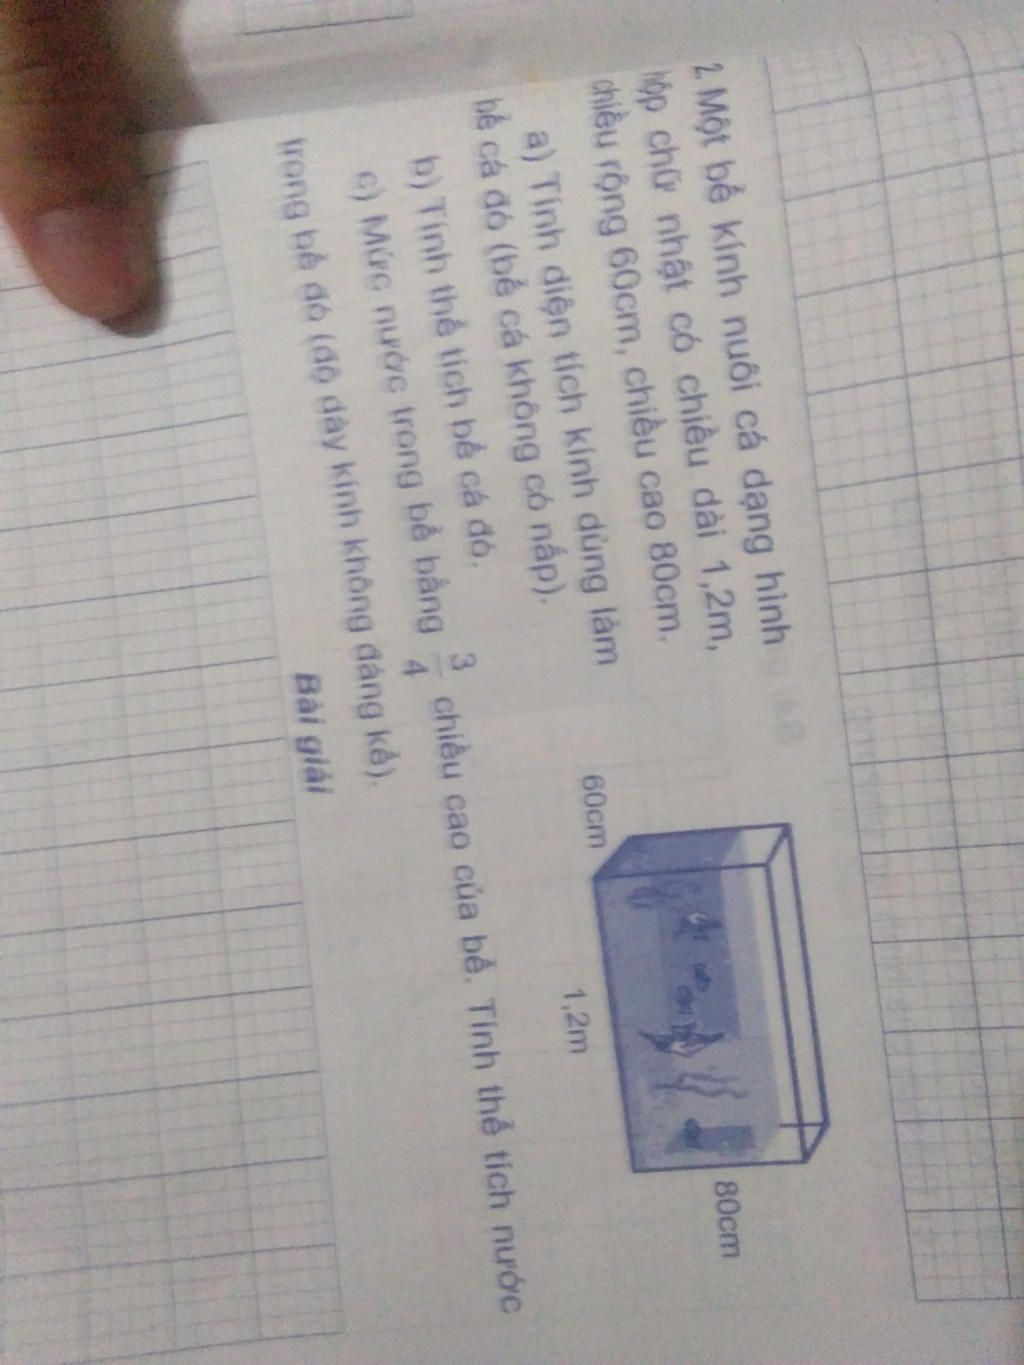 2. Một bể kính nuôi cá dạng hình
hộp chữ nhật có chiều dài 1,2m,
chiều rộng 60cm, chiều cao 80cm.
a) Tính diện tích kính dùng làm
bể cá đó (bể cá không có nắp).
b) Tính thể tích bể cá đó.
c) Mức nước trong bể bằng 3/4 chiều cao của bể. Tính thể tích nước
trong bể đó (độ dày kính không đáng kể).
Bài giải
80cm
60cm
1,2m